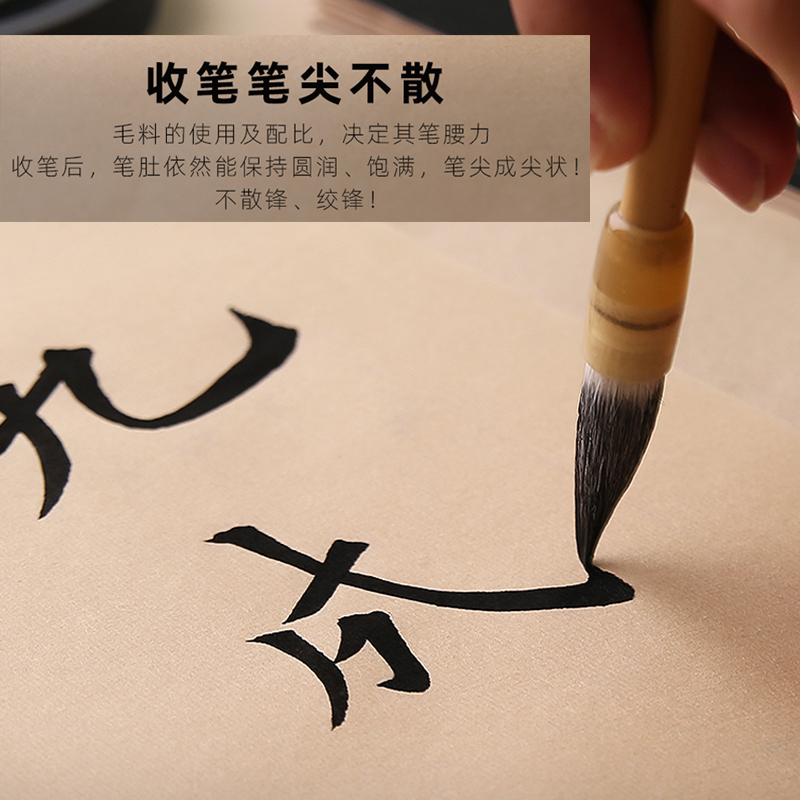 收笔笔尖不散
毛料的使用及配比，决定其笔腰力
收笔后，笔肚依然能保持圆润、饱满，笔尖成尖状！
不散锋、绞锋！
九成